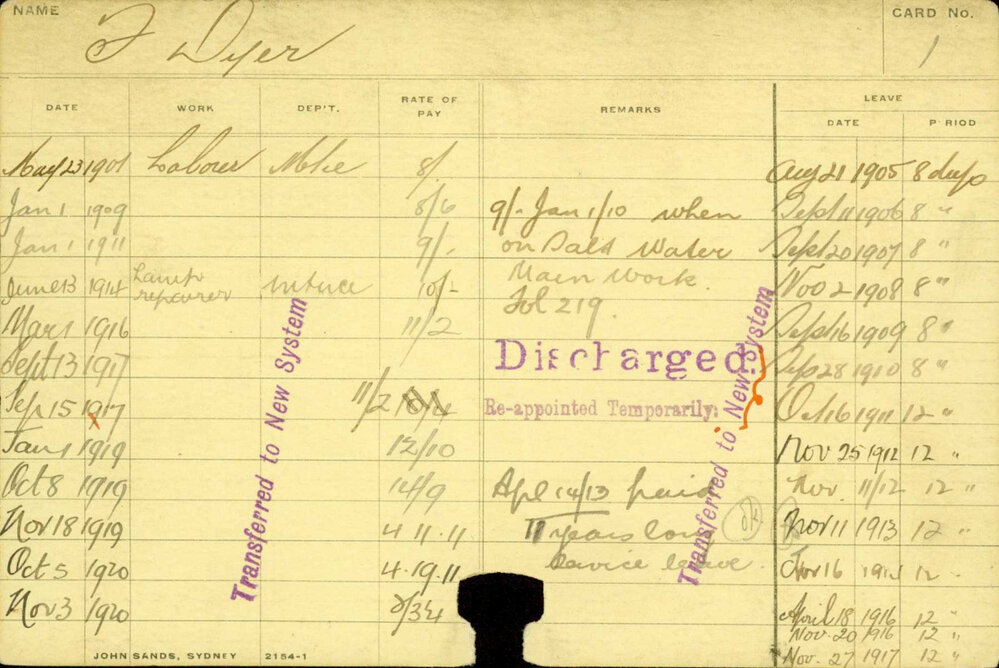 NAME
CARD No.
F Dyer
1
DATE WORK DEP'T. RATE OF PAY REMARKS LEAVE
DATE P RIOD
May 23 1901 Labour Mtce 8/. Aug 21 1905 8 days
Jan 1 1909 8/6 9/- Jan 1/10 when Sept 11 1906 8 "
Jan 1 1911 9/. on Salt Water Sept 20 1907 8 "
June 13 1914 Lamp repairer 10/- Main Work. Nov 2 1908 8 "
Fol 219.
Mar 1 1916 11/2 Sept 16 1909 8 "
Sept 13 1917 Discharged. Sep 28 1910 8 "
Sep 15 1917 11/2 Re-appointed Temporarily. Oct 16 1911 12 "
x
Jan 1 1919 12/10 Nov 25 1912 12 "
Oct 8 1919 14/9 Apl 14/13 Nov. 11/12 12 "
Nov 18 1919 4 11.11 years long Nov 11 1913 12 "
Oct 5 1920 4.19.11 service leave. Nov 16 1914 12 "
Nov 3 1920 April 18 1916 12 "
Nov. 20 1916 12 "
Nov. 27 1917 12 "
Transferred to New System
Transferred to New System
JOHN SANDS, SYDNEY 2154-1